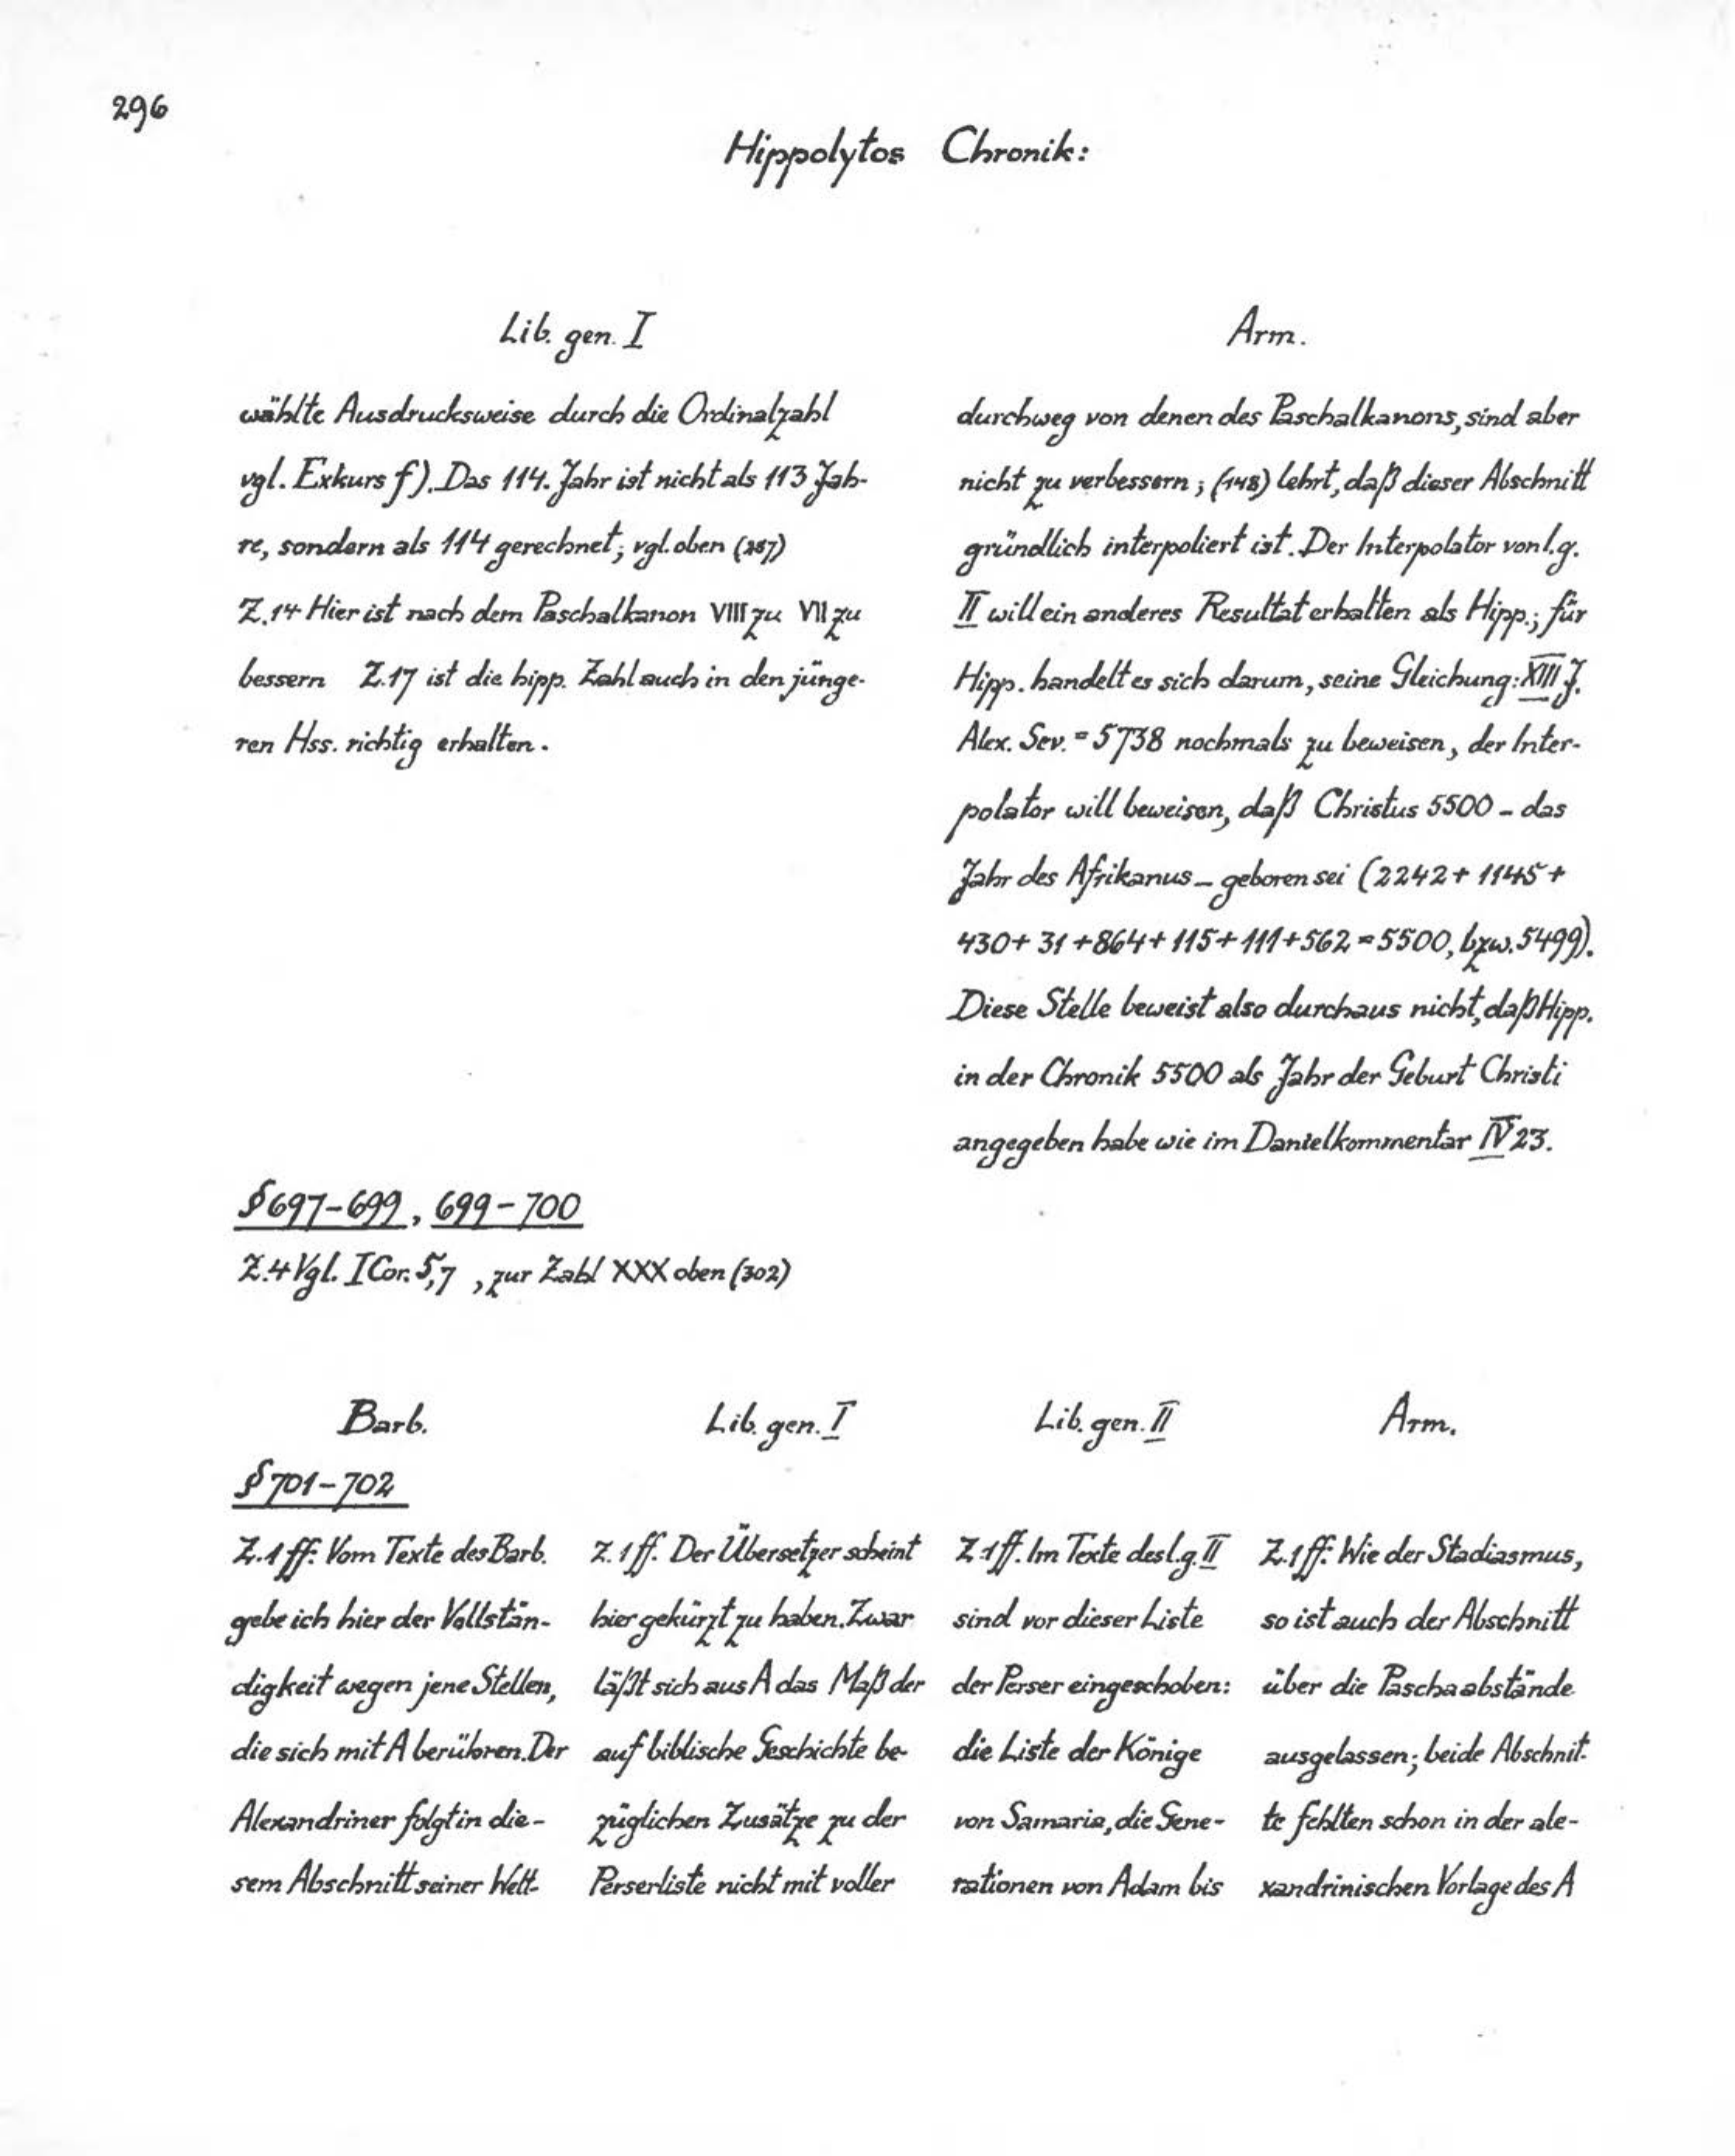 296
Hippolytos Chronik:
Lib. gen. I
wählte Ausdrucksweise durch die Ordinalzahl
vgl. Exkurs f). Das 114. Jahr ist nicht als 113 Jah-
re, sondern als 114 gerechnet; vgl. oben (287)
Z. 14 Hier ist nach dem Paschalkanon VIII zu VII zu
bessern Z. 17 ist die hipp. Zahl auch in den jünge-
ren Hss. richtig erhalten.
Arm.
durchweg von denen des Paschalkanons, sind aber
nicht zu verbessern; (148) lehrt, daß dieser Abschnitt
gründlich interpoliert ist. Der Interpolator von l.g.
II will ein anderes Resultat erhalten als Hipp.; für
Hipp. handelt es sich darum, seine Gleichung: XIII J.
Alex. Sev. = 5738 nochmals zu beweisen, der Inter-
polator will beweisen, daß Christus 5500 - das
Jahr des Afrikanus - geboren sei (2242 + 1145 +
430 + 31 + 864 + 115 + 111 + 562 = 5500, bzw. 5499).
Diese Stelle beweist also durchaus nicht, daß Hipp.
in der Chronik 5500 als Jahr der Geburt Christi
angegeben habe wie im Danielkommentar IV 23.
§ 697-699, 699-700
Z. 4 Vgl. I Cor. 5,7, zur Zahl XXX oben (302)
Barb.
§ 701-702
Z. 1 ff: Vom Texte des Barb.
gebe ich hier der Vollstän-
digkeit wegen jene Stellen,
die sich mit A berühren. Der
Alexandriner folgt in die-
sem Abschnitt seiner Welt-
Lib. gen. I
Z. 1 ff. Der Übersetzer scheint
hier gekürzt zu haben. Zwar
läßt sich aus A das Maß der
auf biblische Geschichte be-
züglichen Zusätze zu der
Perserliste nicht mit voller
Lib. gen. II
Z. 1 ff. Im Texte des l.g. II
sind vor dieser Liste
der Perser eingeschoben:
die Liste der Könige
von Samaria, die Gene-
rationen von Adam bis
Arm.
Z. 1 ff: Wie der Stadiasmus,
so ist auch der Abschnitt
über die Paschaabstände
ausgelassen; beide Abschnit-
te fehlten schon in der ale-
xandrinischen Vorlage des A